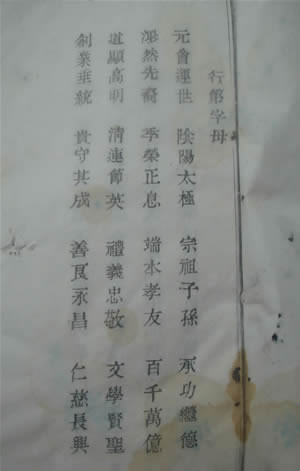 行第字母
元會運世 陰陽太極 宗祖子孫 承功繼德
然先裔 季榮正息 端本孝友 百千萬億
道顯高明 清連節英 禮義忠敬 文學賢聖
創業垂統 貴守其成 善良永昌 仁慈長興